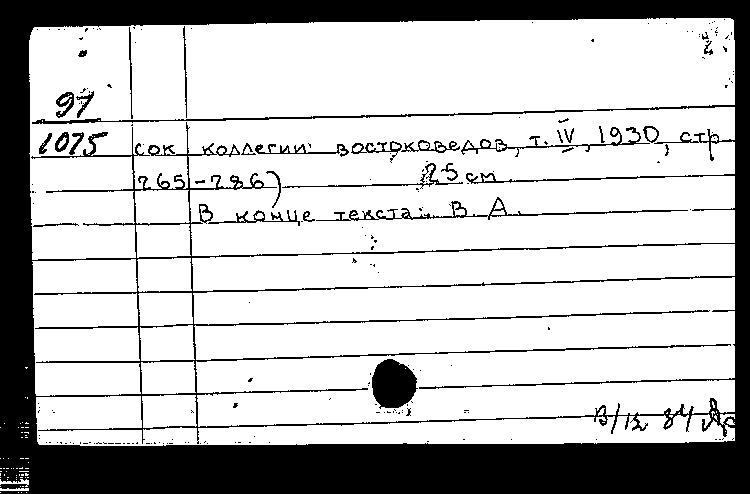 2
97
1075 сок коллегии востоковедов, т. IV, 1930, стр
765-786) 25 см.
В конце текста: В. А.
В/12 84